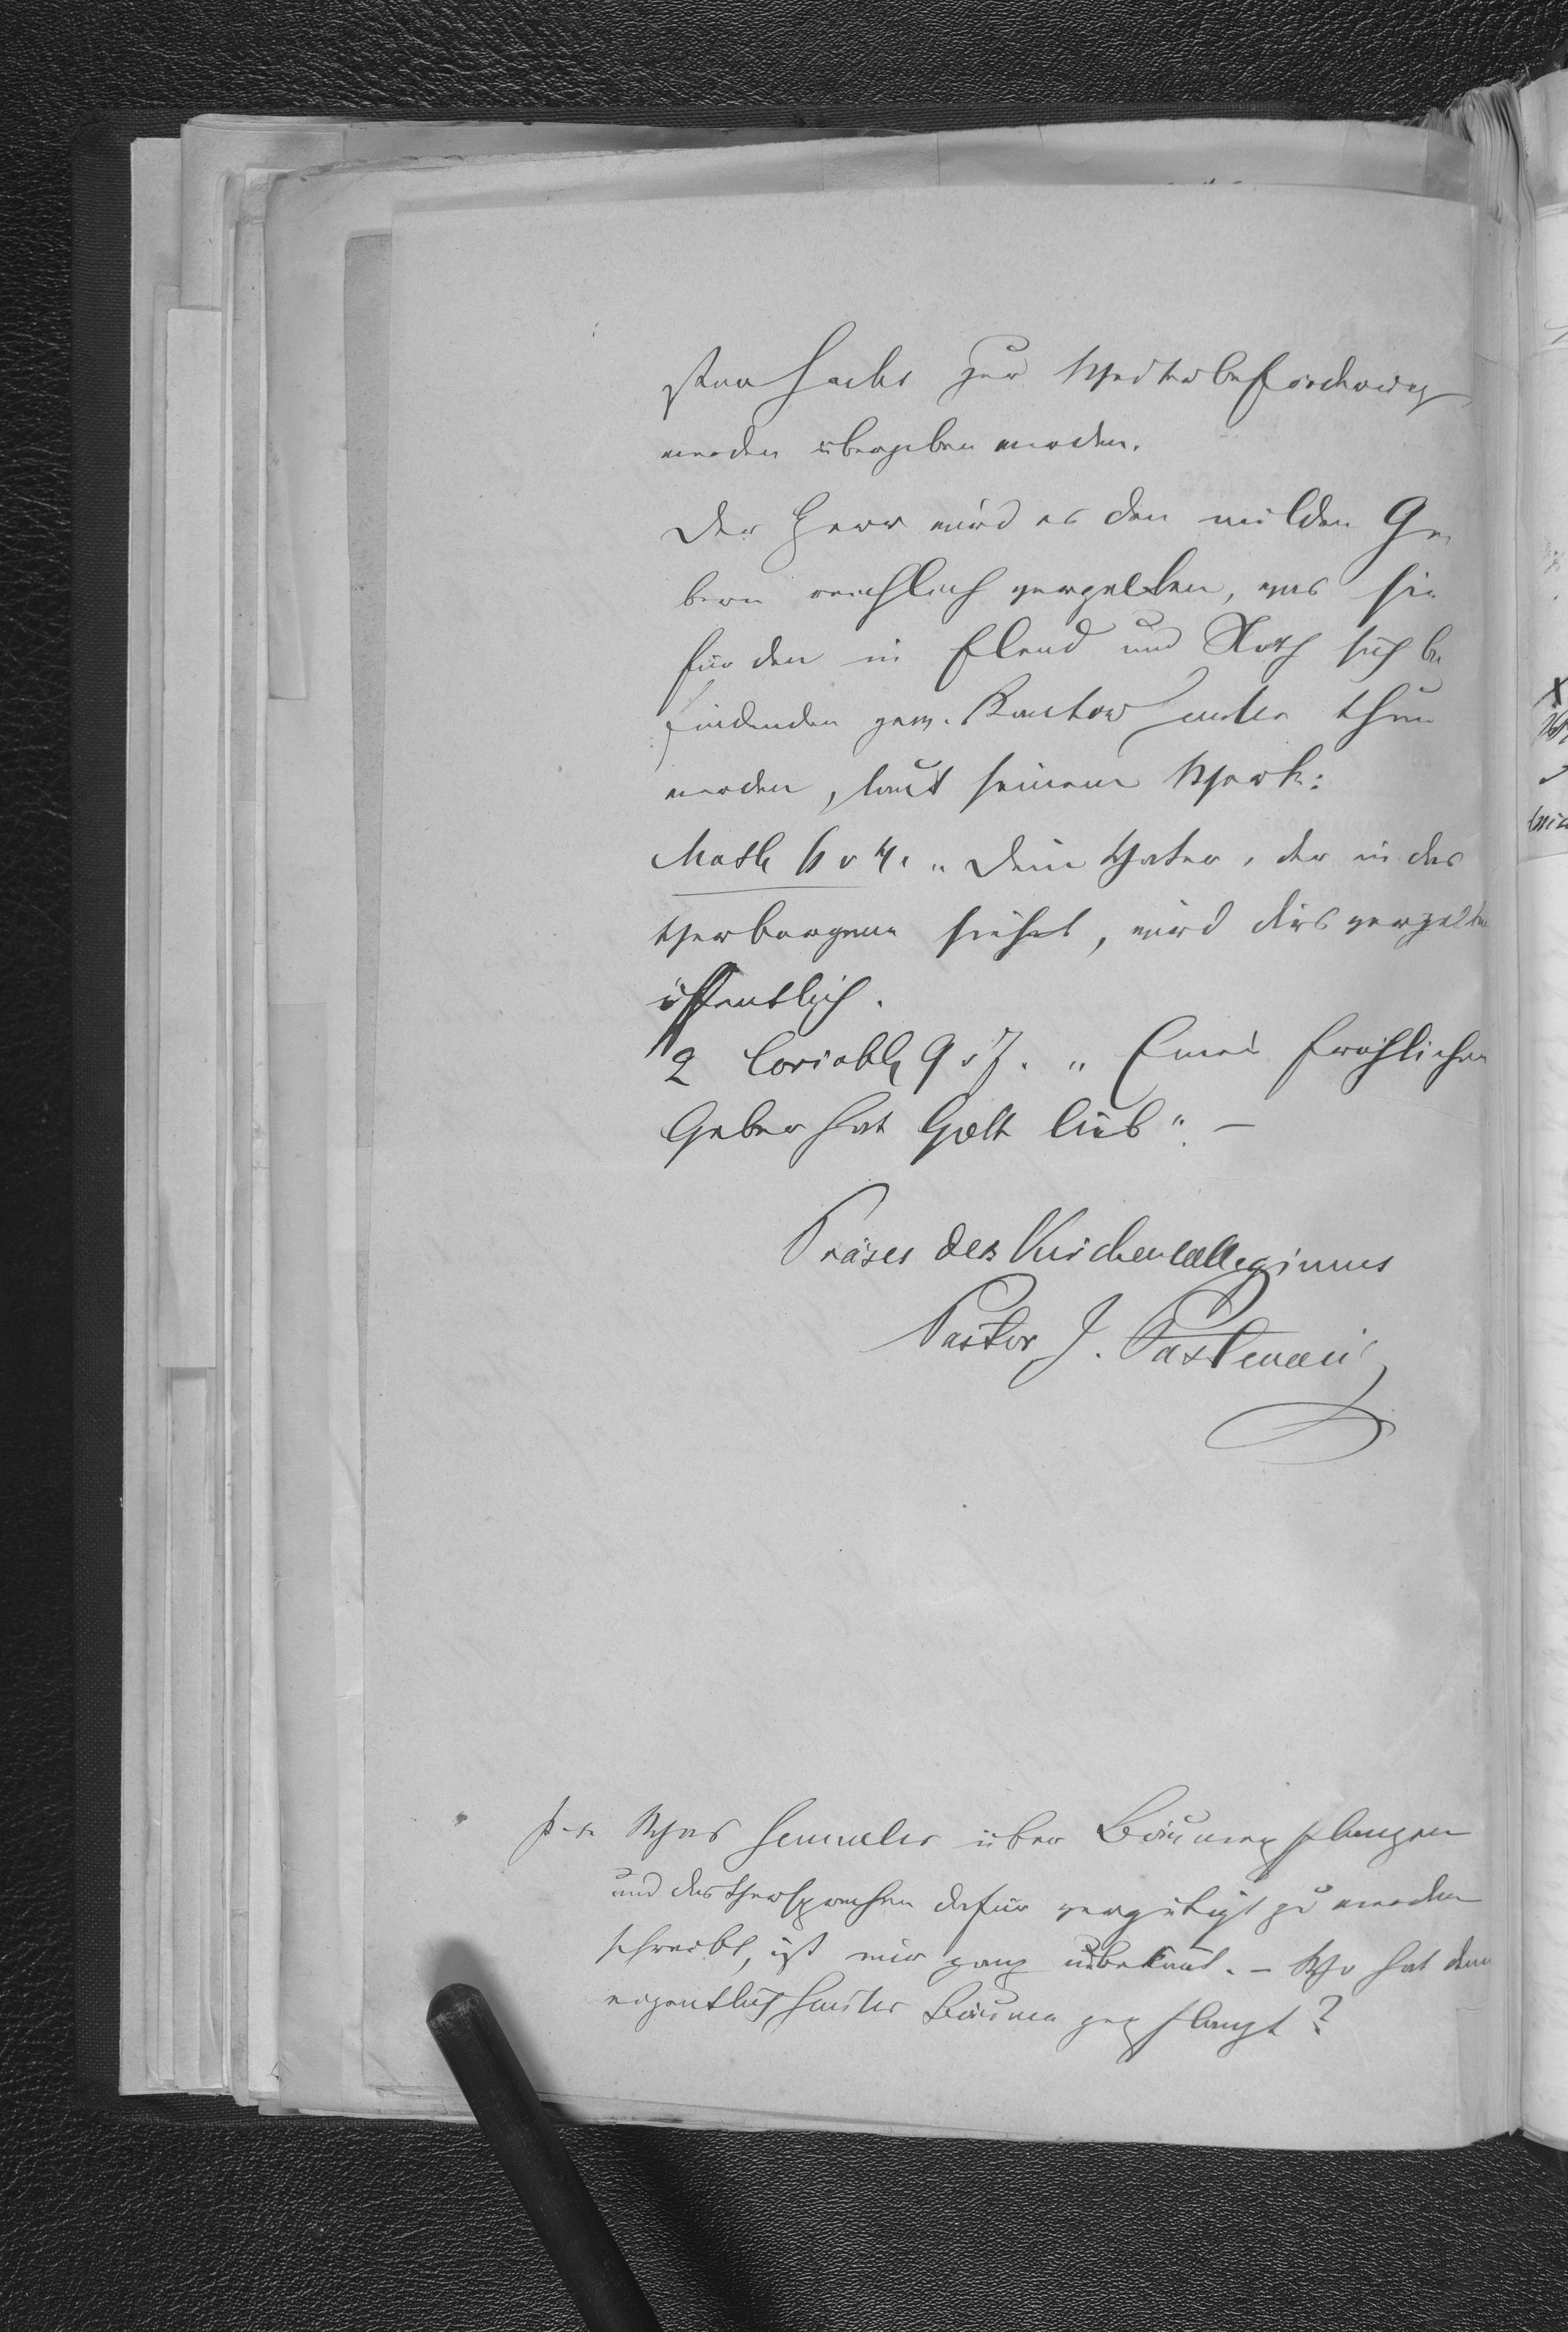 zur Weiterbeförderung
werden übergeben werden.
Der Herr wird es den milden Ge
bern reichlich vergelten, was sie
für den in Elend und Noth sich be
findenden gew. Kantor thun
werden, laut seinem Wort:
Math 6 v 4. „Dein Vater, der in das
Verborgene siehet, wird dirs vergelten
öffentlich.
2 Corinth 9 v 7. „Einen fröhlichen
Geber hat Gott lieb". —
Präses des Kirchencollegiums
Pastor J.
p.s. Was über Bäume pflanzen
und das Versprechen dafür vergütigt zu werden
schreibt, ist mir ganz unbekannt. – Wo hat denn
eigentlich Bäume gepflanzt?